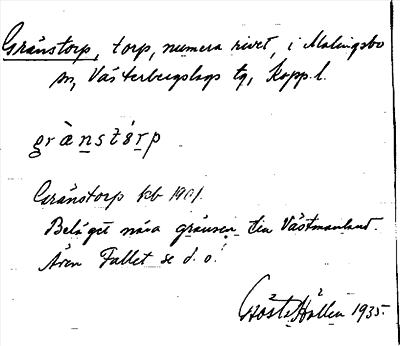 Gränstorp, torp, numera rivet, i Malingsbo
sn, Västerbergslags tg, Kopp.l.
grànstårp
Gränstorp kb 1901.
Beläget nära gränsen till Västmanland.
Även Fallet se d.o!
Gösta Hållen 1935.